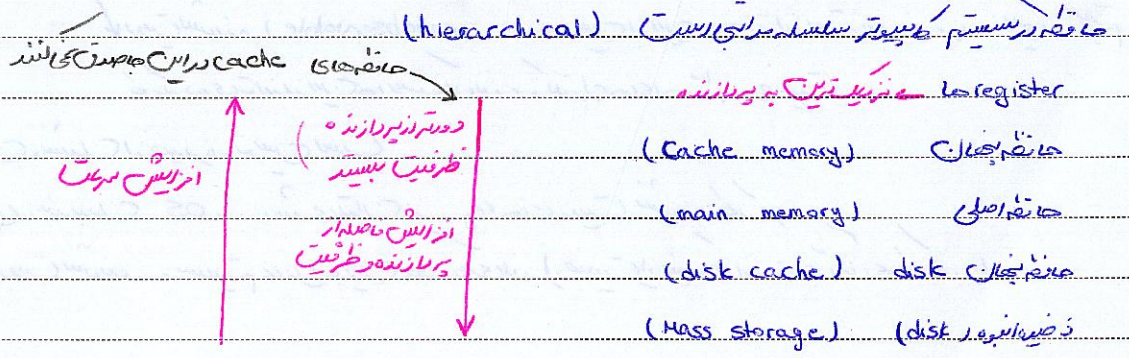 حافظه در سیستم کامپیوتر سلسله مراتبی است (hierarchical)
حافظه‌های cache در این جا صدق نمی‌کنند
registerها ← نزدیک‌ترین به پردازنده
حافظه پنهان (Cache memory)
حافظه اصلی (main memory)
حافظه پنهان disk (disk cache)
ذخیره انبوه (disk) (Mass storage)
دورتر از پردازنده
ظرفیت بیشتر
افزایش فاصله از
پردازنده و ظرفیت
افزایش سرعت